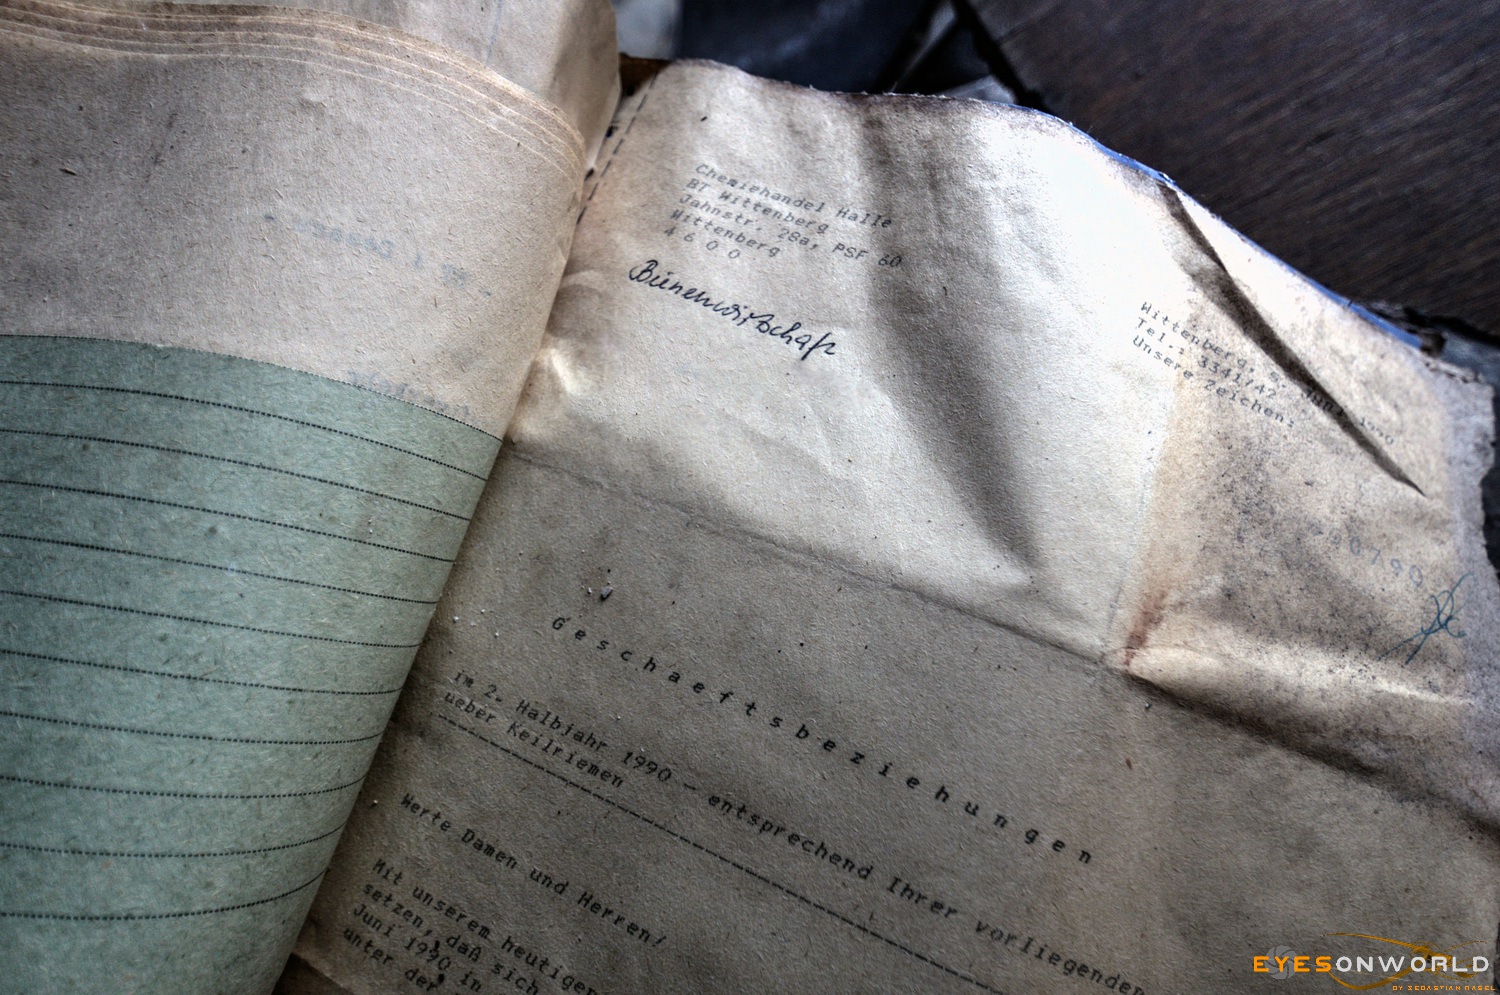 Chemiehandel Halle
BT Wittenberg
Jahnstr. 28a, PSF 60
Wittenberg
4 6 0 0
Wittenberg, Juni 1990
Tel.: 3341/42
Unsere Zeichen:
G e s c h a e f t s b e z i e h u n g e n
im 2. Halbjahr 1990 - entsprechend Ihrer vorliegenden
ueber Keilriemen
Werte Damen und Herren!
Mit unserem heutigen
setzen, daß sich
Juni 1990 in
unter der
EYESONWORLD
BY SEBASTIAN NAGEL